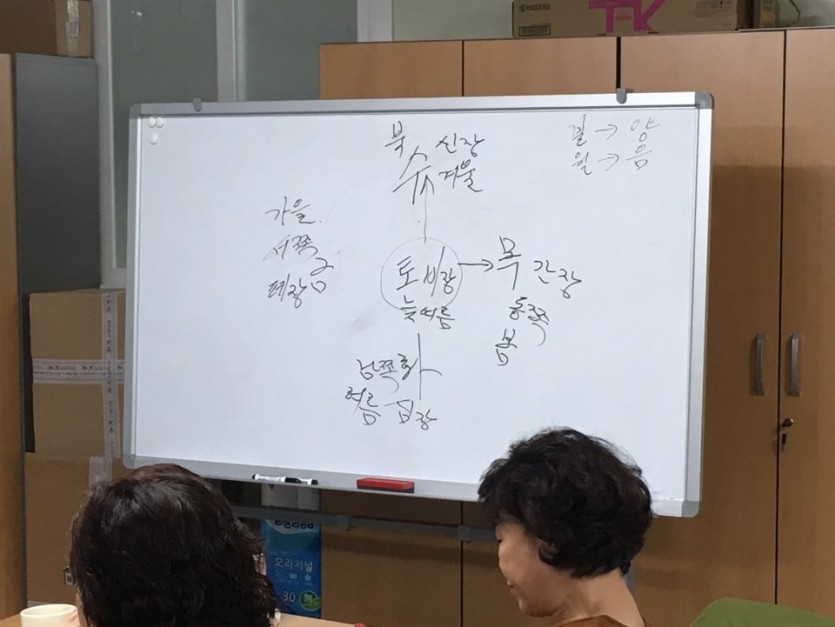 KYOCERA
TK
북 신장
수 겨울
일 → 양
월 → 음
가을
서쪽
금
폐장
토 비장
늦여름
목 간장
동쪽
봄
남쪽 화
여름 심장
오리지널
30